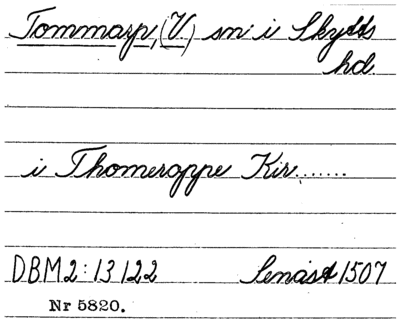 Tommarp, (V.) sn i Skytts
hd.
i Thomeroppe Kir.......
DBM2:13122 Senast 1507
Nr 5820.